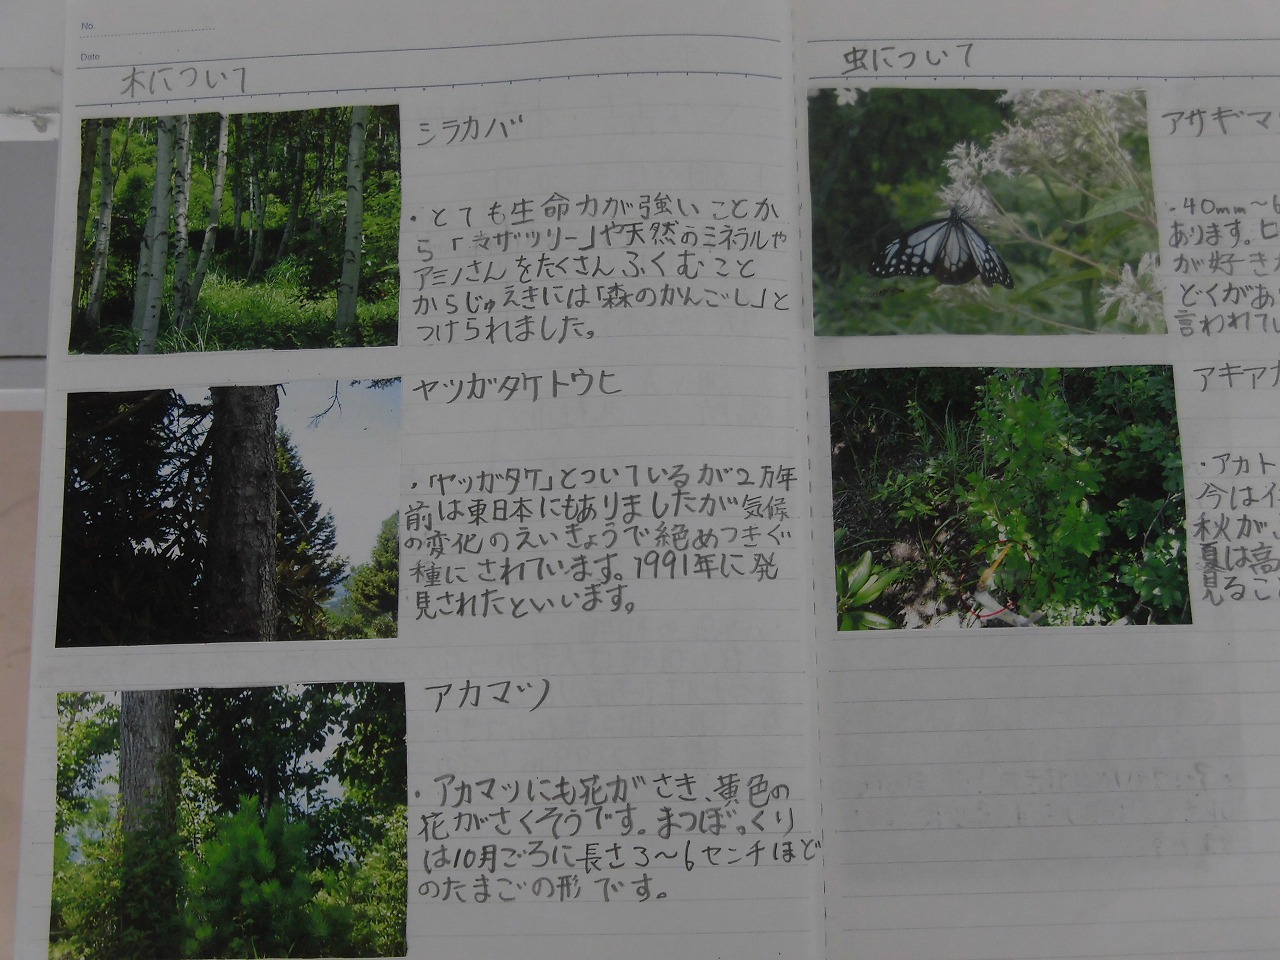 No.
Date
木について
シラカバ
・とても生命力が強いことか
ら「マザツリー」や天然のミネラルや
アミノさんをたくさんふくむこと
からじゅえきには「森のかんごし」と
つけられました。
ヤツガタケトウヒ
・「ヤツガタケ」とついているが2万年
前は東日本にもありましたが気候
の変化のえいきょうで絶めつきぐ
種にされています。1991年に発
見されたといいます。
アカマツ
・アカマツにも花がさき、黄色の
花がさくそうです。まつぼっくり
は10月ごろに長さ3〜6センチほど
のたまごの形です。
虫について
アサギマ
・40mm〜6
あります。ヒ
が好きか
どくがあ
言われてい
アキアカ
・アカト
今はイ
秋が
夏は高
見るこ